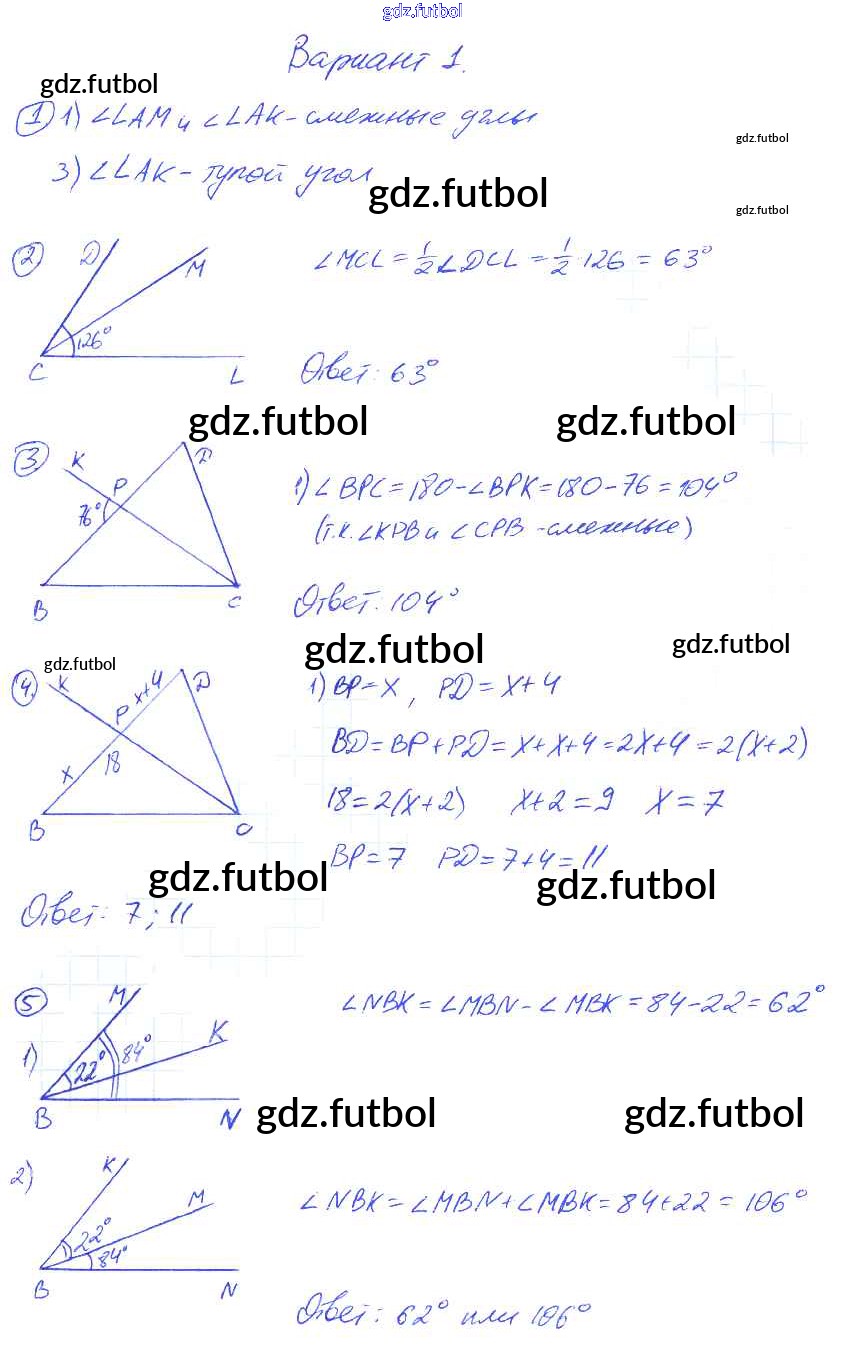 gdz.futbol
Вариант 1.
gdz.futbol
① 1) ∠LAM и ∠LAK - смежные углы
gdz.futbol
3) ∠LAK - тупой угол
gdz.futbol
gdz.futbol
② D M ∠MCL = 1/2 ∠DCL = 1/2 · 126 = 63°
126°
C L Ответ: 63°
gdz.futbol gdz.futbol
③ K D
P 1) ∠BPC = 180 - ∠BPK = 180 - 76 = 104°
76° (т.к. ∠KPB и ∠CPB - смежные)
B C Ответ: 104°
gdz.futbol gdz.futbol
gdz.futbol
④ K x+4 D 1) BP = x, PD = x+4
P
x 18 BD = BP + PD = x + x + 4 = 2x + 4 = 2(x+2)
18 = 2(x+2) x+2 = 9 x = 7
B C
BP = 7 PD = 7+4 = 11
gdz.futbol gdz.futbol
Ответ: 7; 11
⑤ M ∠NBK = ∠MBN - ∠MBK = 84 - 22 = 62°
K
1) 22° 84°
B N
gdz.futbol gdz.futbol
2) K
M ∠NBK = ∠MBN + ∠MBK = 84 + 22 = 106°
22°
84°
B N
Ответ: 62° или 106°